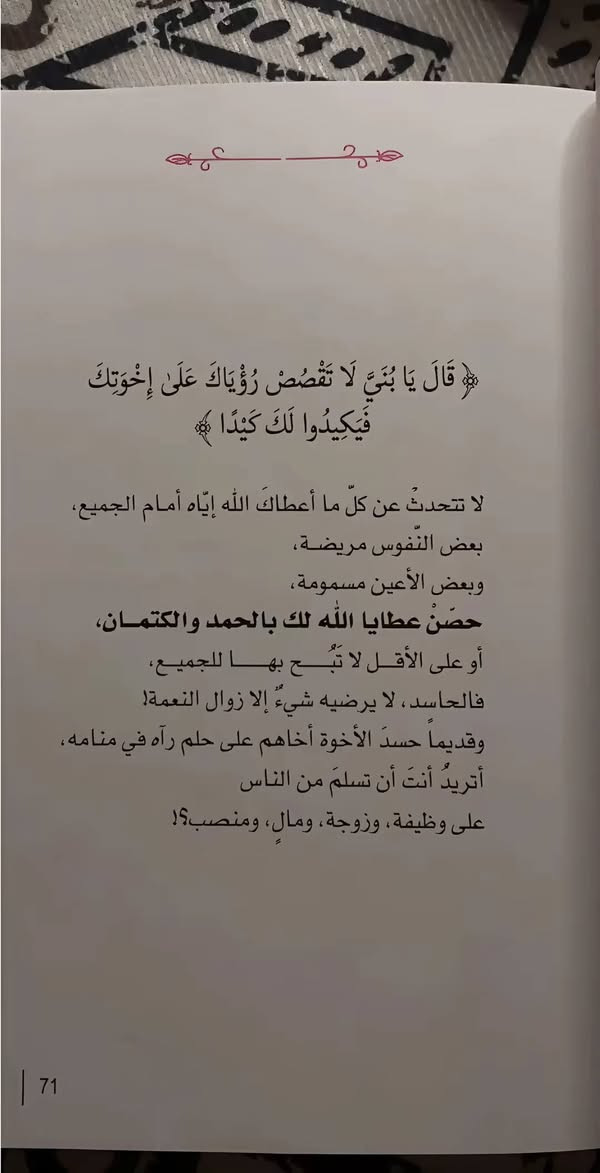 ﴿ قَالَ يَا بُنَيَّ لَا تَقْصُصْ رُؤْيَاكَ عَلَىٰ إِخْوَتِكَ
فَيَكِيدُوا لَكَ كَيْدًا ﴾
لا تتحدثْ عن كلّ ما أعطاكَ الله إيّاه أمام الجميع،
بعض النّفوس مريضـة،
وبعض الأعين مسمومة،
حصّنْ عطايا الله لك بالحمد والكتمـان،
أو على الأقـل لا تَبُـــح بهـــا للجميع،
فالحاسد، لا يرضيه شيءٌ إلا زوال النعمة!
وقديماً حسدَ الأخوة أخاهم على حلم رآه في منامه،
أتريدُ أنتَ أن تسلمَ من الناس
على وظيفة، وزوجة، ومالٍ، ومنصب؟!
71